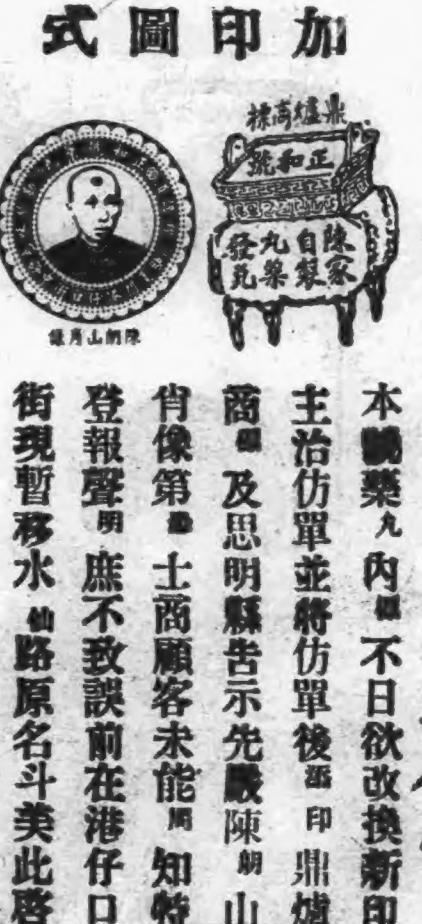 加印圖式
鼎爐高標
正和號
陳家
自製
丸藥
發兌
陳朗山肖像
本號藥丸內概不日欲改換新印
主治仿單並將仿單後蓋印鼎爐
商標及思明縣吿示先嚴陳朗山
肖像第恐士商顧客未能周知特
登報聲明庶不致誤前在港仔口
街現暫移水仙路原名斗美此啓